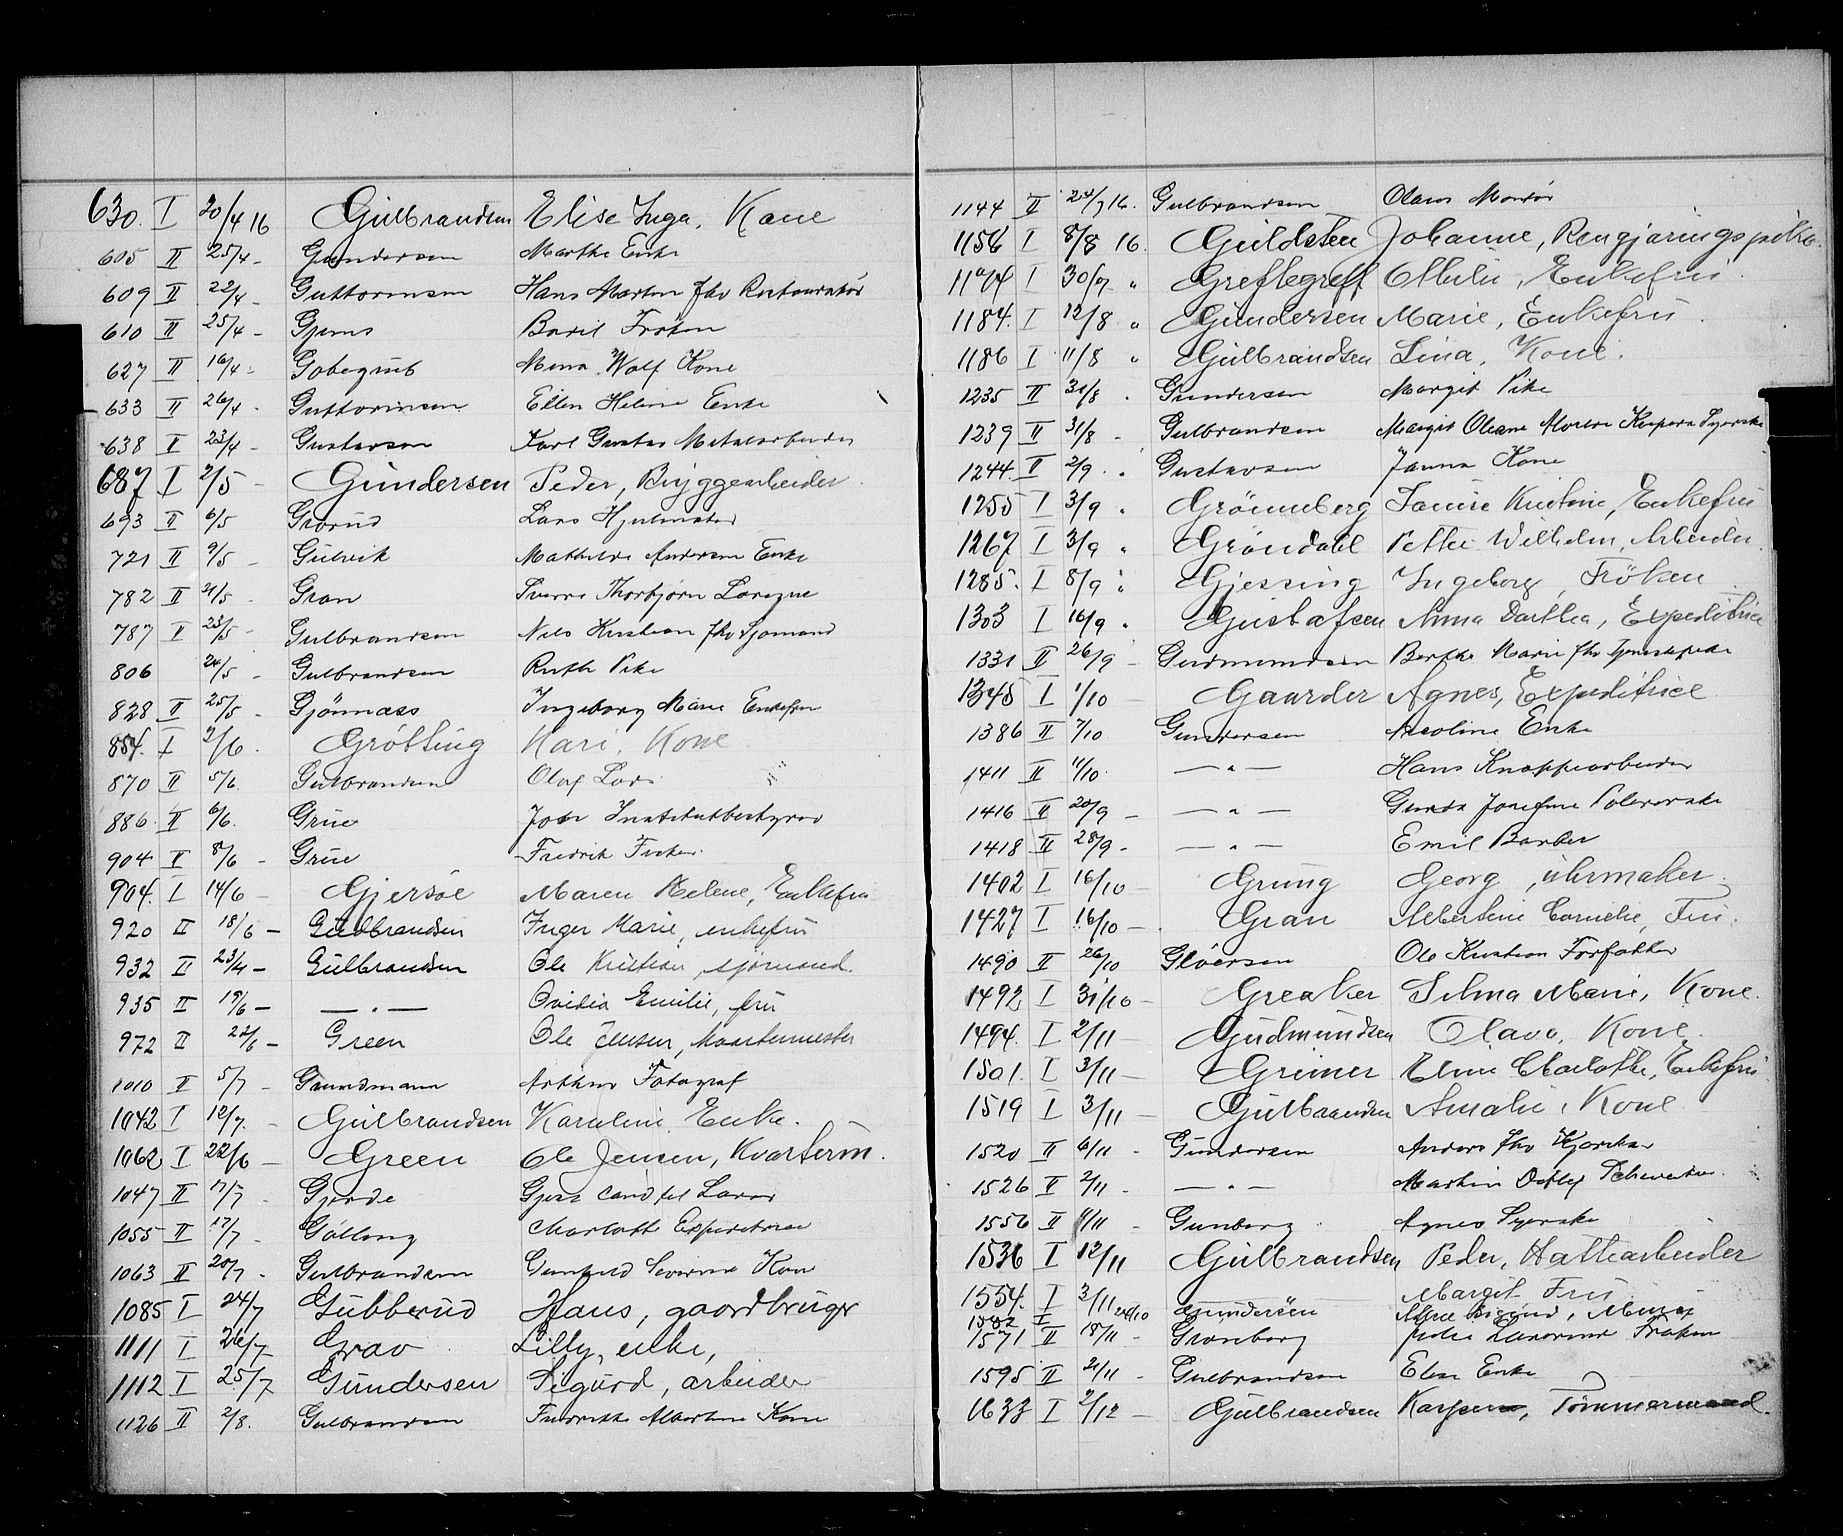 630. I 20/4 16 Gulbrandsen Elise Inga, Kone
605 II 25/4 - Gundersen Marthe Enke
609 II 22/4 - Guttormsen Hans Morten fhv Restauratør
610 II 25/4 - Gjems Boril Frøken
627 II 16/4 - Gobegrub Mina Wolf Kone
633 II 26/4 - Guttormsen Ellen Helene Enke
638 II 23/4 - Gustavsen Karl Gustav Metalarbeider
687 I 2/5 - Gundersen Peder, Bryggearbeider
693 II 6/5 Grorud Lars Hjulmaker
721 II 9/5 - Gulvik Mathilde Andersen Enke
782 II 21/5 - Gran Sverre Thorbjørn
787 II 23/5 - Gulbrandsen Nils Kristian fhv Sjømand
806 24/5 - Gulbrandsen Ruth Pike
828 II 25/5 - Gjönnæss Ingeborg Marie Enkefru
854. I 2/6. Grøtting Kari, Kone
870 II 5/6. Gulbrandsen Olaf
886. II 6/6. Grue Institutbestyrer
904 II 8/6 - Grue Fredrik Fisker
904. I 14/6 - Gjersøe Maren Helene, Enkefru
920 II 18/6 - Gulbrandsen Inger Marie, enkefru
932 II 23/4 - Gulbrandsen Ole Kristian, sjømand.
935 II 19/6 - — " — Ovidia Emilie, fru
972 II 22/6 - Green Ole Jensen, Kvartermester
1010 II 5/7 - Grundmann Arthur Fotograf
1042 I 12/7. - Gulbrandsen Karoline, Enke.
1062 I 22/6 - Green Ole Jensen, Kvarterm.
1047 II 17/7 - Gjerde cand fil Lærer
1055 II 17/7 - Charlotte Expeditrice
1063 II 20/7 - Gulbrandsen Severine Kone
1085 I 24/7 Gubberud Hans, gaardbruger
1111 I 26/7 Grav Lilly, enke,
1112 I 25/7 Gundersen Sigurd, arbeider
1126 II 2/8. Gulbrandsen Fredrikke Albertine Kone
1144 II 24/7 16. Gulbrandsen Olaus
1156 I 8/8 16. Guldsten Johanne, Rengjøringspike.
1174 I " Greftegreff Othilie, Enkefru
1184. I 12/8 " Gundersen Marie, Enkefru
1186 I 11/8 " Gulbrandsen Lina, Kone.
1235 II 31/8 . Gundersen Margit Pike
1239 II 31/8 - Gulbrandsen Margit Oleane Syerske
1244. II 2/9. " Gustavsen Janna Kone
1255 I 3/9 " Grønneberg Kristine, Enkefru
1267 I 3/9 " Grøndahl Petter Wilhelm, Arbeider
1285. I 8/9 " Gjessing Ingeborg, Frøken
1303 I 16/9 " Gustafsen Anna Dorthea, Expeditrice
1331 II 26/9 - Gudmundsen Berthe Marie fhv tjenestepike
1345 I 1/10 - Gaarder Agnes, Expeditrice
1386 II 7/10 Gundersen Nicoline Enke
1411 II 11/10. — " — Hans Knappearbeider
1416 II 20/9 - — " — Gunda Josefine
1418 II 28/9 - — " — Emil Barber
1402 I 16/10 - Grung Georg, uhrmaker.
1427 I 16/10 - Gran Albertine Cornelie, Fru.
1490 II 26/10 Gløersen Ole Kristian Forfatter
1492 I 31/10 - Greaker Selma Marie, Kone.
1494. I 2/11 - Gudmundsen Olava, Kone.
1501. I 3/11 - Greiner Eline Charlotte, Enkefru
1519 I 3/11 - Gulbrandsen Amalie, Kone
1520 II 6/11 - Gundersen Anders fhv
1526 II 2/11 - — " — Martin
1556 II 11/11 - Gunborg Agnes Syerske
1536 I 12/11 Gulbrandsen Peder, Hattearbeider
1554. I 3/11 Margit Fru
I 24/10 Gundersen
1571 II 18/11 - Grønberg Frøken
1595 II 21/11 - Gulbrandsen Elen Enke
1633 I 2/12 - Gulbrandsen Kasper, Tømmermand.